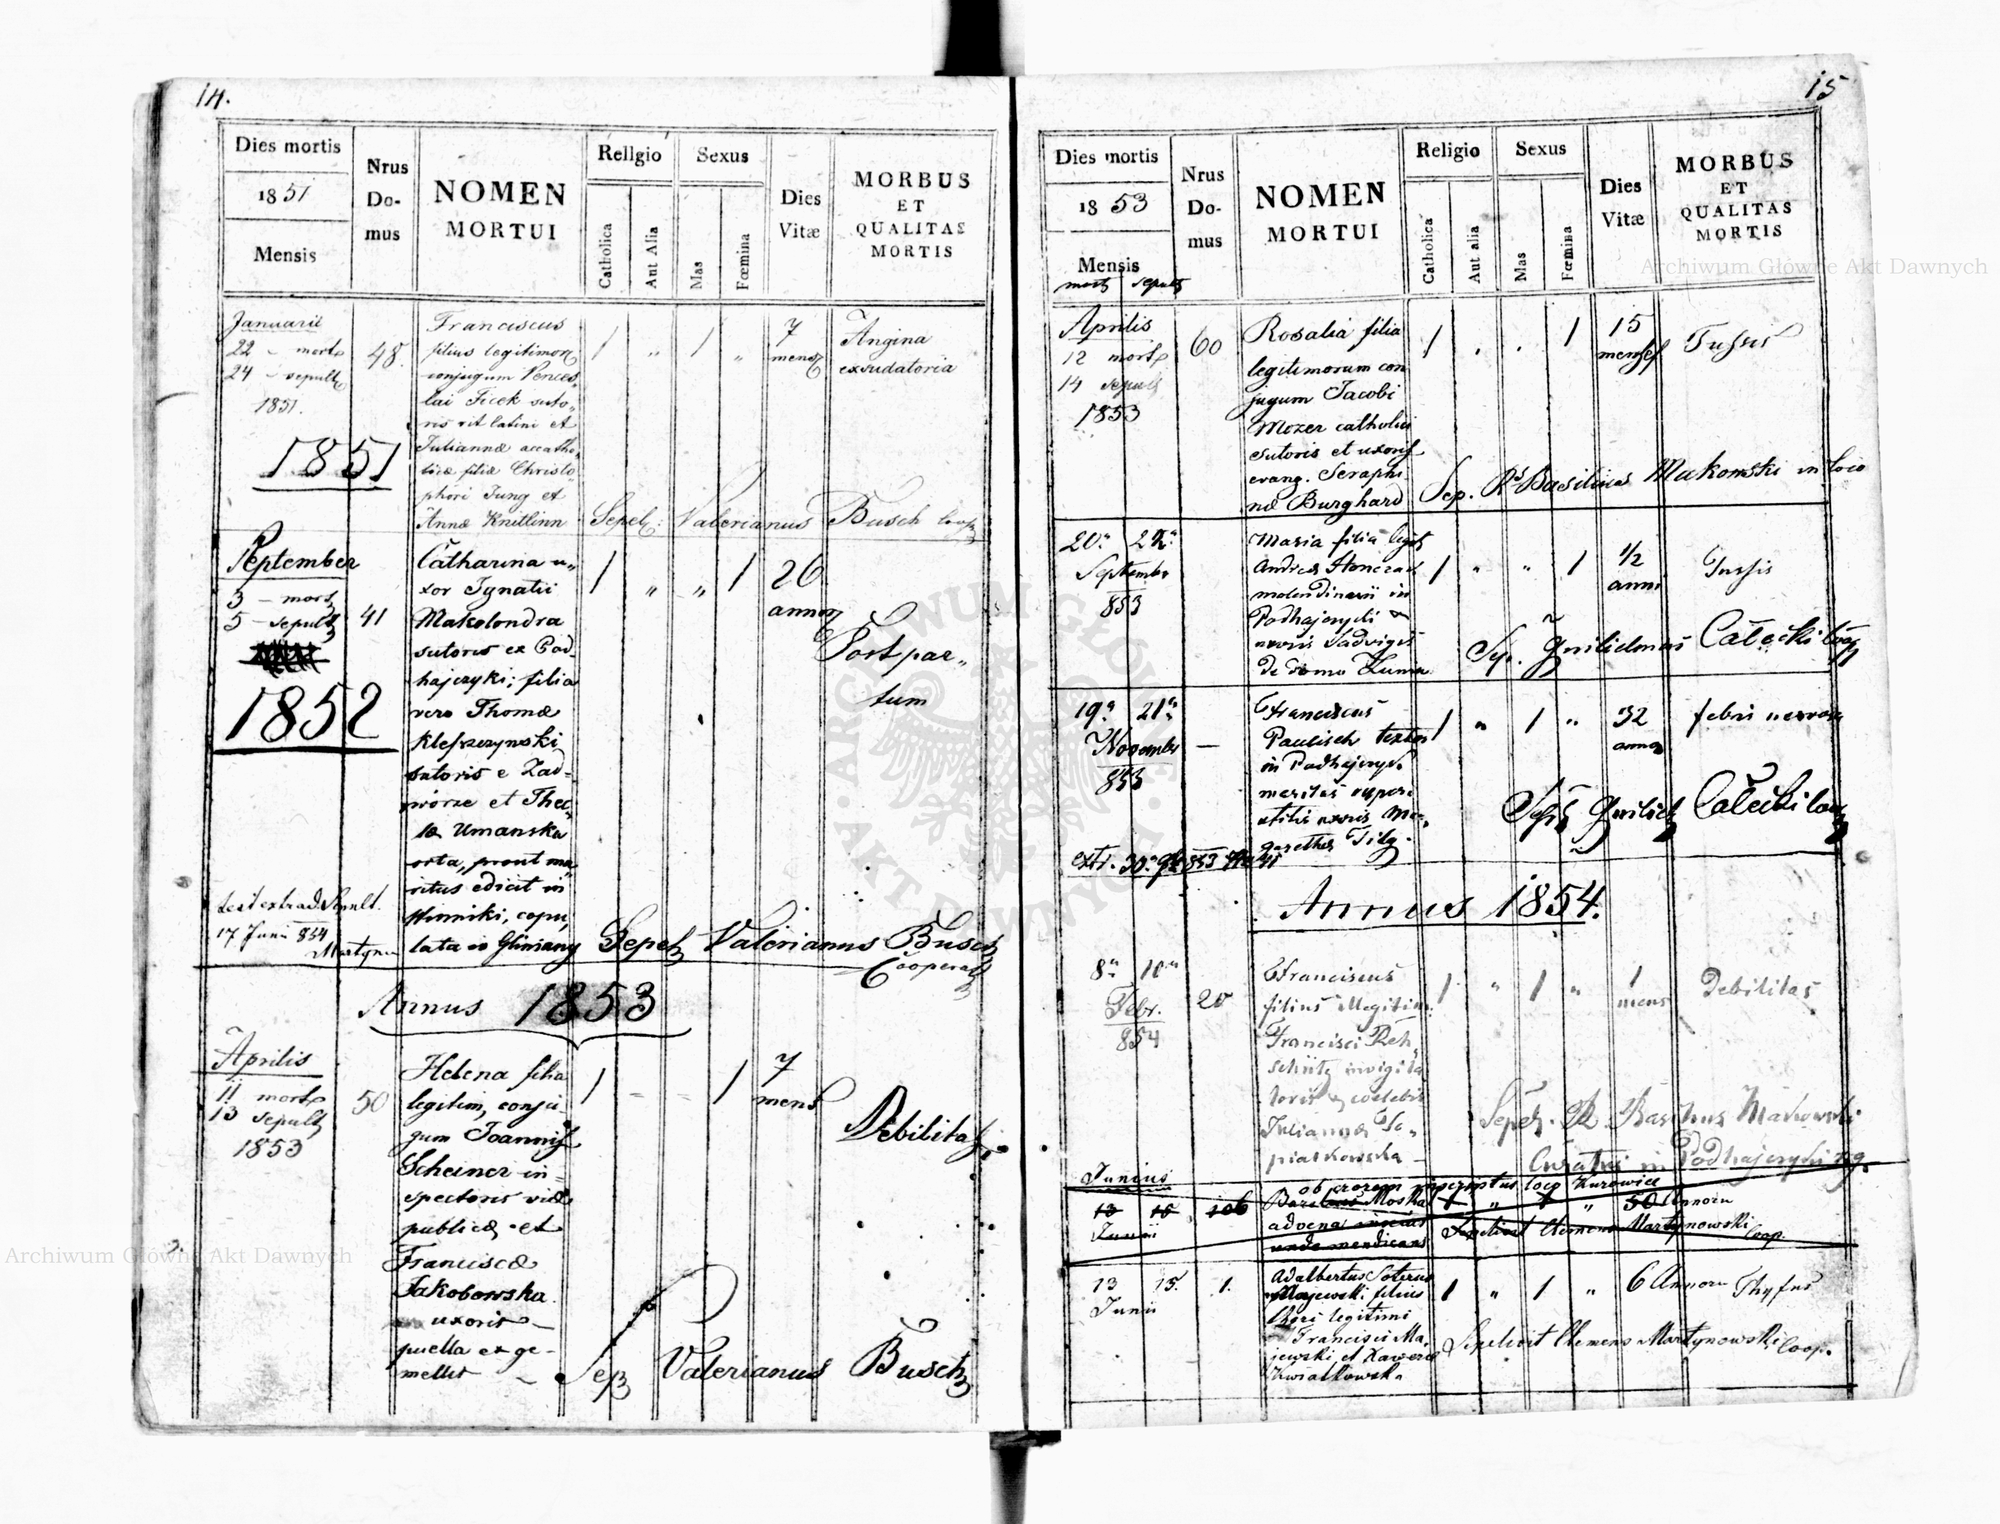 14.
Dies mortis
1851
Mensis
Nrus
Do-
mus
NOMEN
MORTUI
Religio
Catholica
Aut Alia
Sexus
Mas
Fœmina
Dies
Vitæ
MORBUS
ET
QUALITAS
MORTIS
Januarii
22 - mort
24 - sepult
1851.
1851
48.
Franciscus
filius legitimor
conjugum Vences-
lai Ficek suto-
ris rit latini et
Juliannæ accatho-
licæ filiæ Christo-
phori Jung et
Annæ Knitlinn
1 " 1 "
7
mens
Angina
exsudatoria
Sepel: Valerianus Busch Coop
September
3 - mort
5 - sepult
1852
41
Catharina u-
xor Ignatii
Makolondra
sutoris ex Pod-
hajczyki; filia
vero Thomæ
Kleszczynski
sutoris e Zad-
worze et Thec-
læ Umanska
orta, prout ma-
ritus edicit in
copu-
lata in Gliniany
1 " " 1
26
annor
Post par-
tum
test extrad.
17 Junii 854
Martynow
Sepel Valerianus Busch
Cooperat
Annus 1853
Aprilis
11 mort
13 sepult
1853
50
Helena filia
legitim, conju-
gum Joannis
Scheiner in-
spectoris viæ
publicæ et
Franciscæ
Jakobowska
uxoris -
puella ex ge-
mellis -
1 - - 1
7
mens
Debilitas
Sep Valerianus Busch
15
Dies mortis
1853
Mensis
mort sepult
Nrus
Do-
mus
NOMEN
MORTUI
Religio
Catholica
Aut alia
Sexus
Mas
Fœmina
Dies
Vitæ
MORBUS
ET
QUALITAS
MORTIS
Aprilis
12 mort
14 sepult
1853
60
Rosalia filia
legitimorum con
jugum Jacobi
Mozer catholici
sutoris et uxoris
evang. Seraphi
næ Burghard
1 . . 1
15
menses
Tussis
Sep. Rs Basilius Makowski in loco
20a 22a
Septembr
853
Maria filia legit
Andreæ
molendinarii in
Podhajczyki &
uxoris Hadvigis
de domo Kuma
1 " " 1
1/2
anni
Tussis
Sep. Guilielmus Całecki Coop
19a 21a
Novembr
853
—
Franciscus
Paulisch textor
in Podhajczyk.
maritus
uxoris Mar-
garethæ Tilg.
1 " 1 "
32
annor
febris nervosa
Sep Guiliel Całecki Coop
extr. 30a 853
Annus 1854.
8a 10a
Febr.
854
20
Franciscus
filius illegitim:
Francisci Reh-
schütz invigila
toris & coelebis
Juliannæ So-
piatkowska -
1 " 1 "
1
mens
Debilitas
Sepel. R. Basilius Makowski
Curatus in Podhajczyki
Junius
ob errorem inscriptus loco Kurowice
13 15
Junii
106
Moskal
advena nescius
unde mendicans
1 " 1 " 50 Annoru
Sepelivit Clemens Martynowski
Coop.
13 15.
Junii
1.
Adalbertus Soterus
Majewski filius
thori legitimi
Francisci Ma-
jewski et Xaveræ
Kwiatkowska
1 " 1 "
6 Annoru
Thyfus
Sepelivit Clemens Martynowski Coop.
Archiwum Główne Akt Dawnych
Archiwum Główne Akt Dawnych
ARCHIWUM GŁÓWNE
AKT DAWNYCH